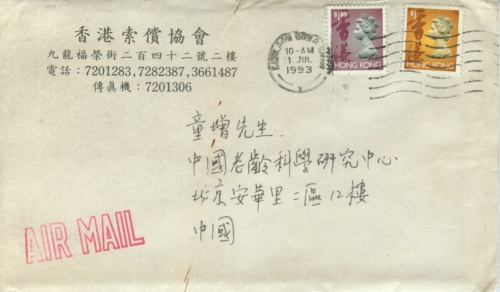 香港索償協會
九龍福榮街二百四十二號二樓
電話：7201283, 7282387, 3661487
傳眞機：7201306
10-AM
1 JUL
1993
$1.80
香港
HONG KONG
$1
香港
HONG KONG
童增先生.
中國老齡科學研究中心
北京安華里二區12樓
中國
AIR MAIL